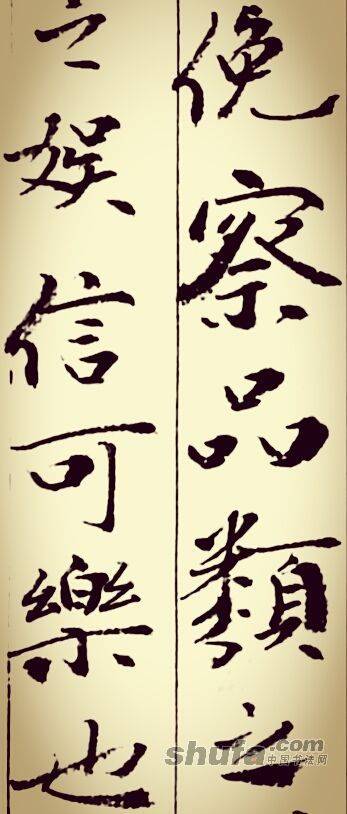 俛察品類之
之娛信可樂也
shufa.com
中国书法网